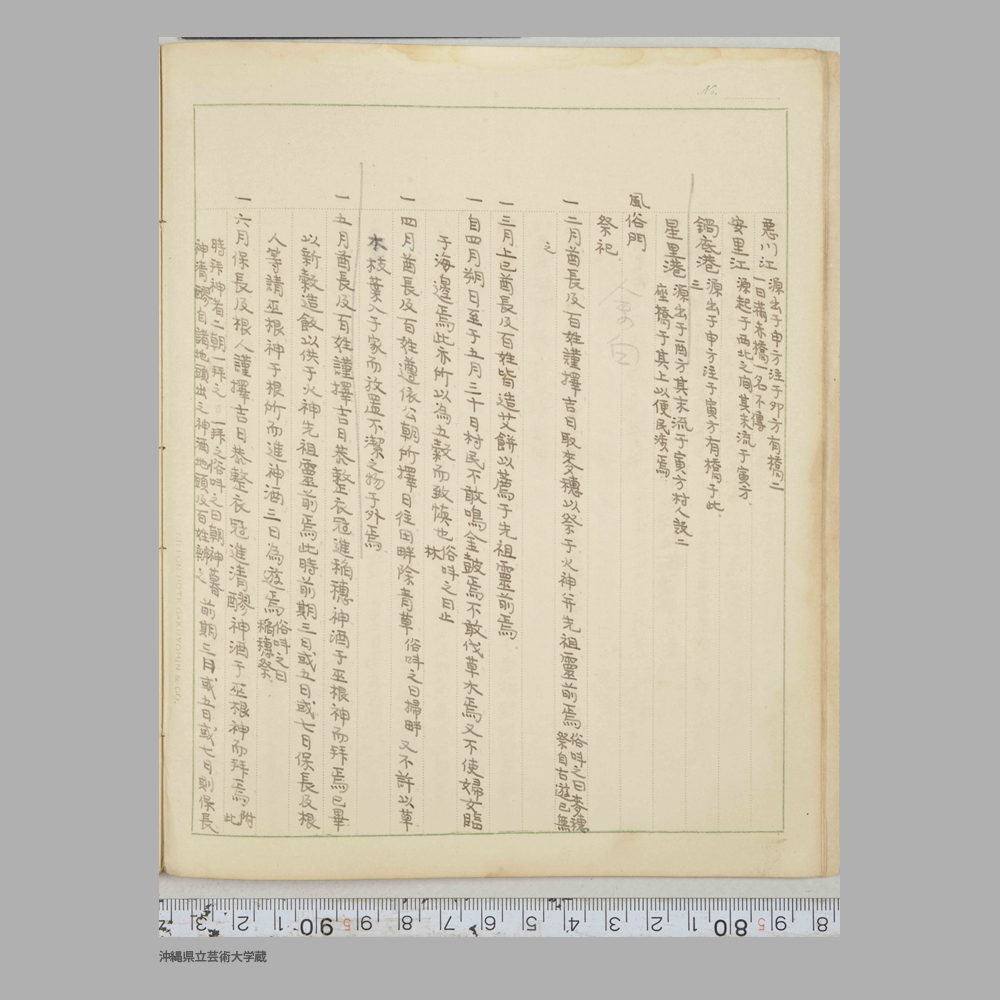 No.
悪川江 源出于申方注于卯方有橋二
一曰満赤橋一名不傳
安里江 源起于西北之间其末流于寅方
鍋底港 源出于申方注于寅方有橋于此
二
星里港 源出于酉方其末流于寅方村人設二
座橋于其上以便民濟焉
風俗門
祭祀
一二月酋長及百姓謹擇吉日取麥穗以祭于火神并先祖靈前焉 俗呌之曰麥穗
祭自古遊已無
之
一三月上巳酋長及百姓皆造艾餅以薦于先祖靈前焉
一自四月朔日至于五月三十日村民不敢鳴金鼓焉不敢伐草木焉又不使婦女臨
于海邊焉此亦所以為五穀而致慎也 俗呌之曰止
一四月酋長及百姓遵依公朝所擇日往田畔除青草 俗呌之曰掃畔 又不許以草
木枝葉入于家而放置不潔之物于外焉
一五月酋長及百姓謹擇吉日恭整衣冠進稲穗神酒于巫根神而拜焉已畢
以新穀造飯以供于火神先祖靈前焉此時前期三日或五日或七日保長及根
人等請巫根神于根所而進神酒三日為遊焉 俗呌之曰
稲穗祭
一六月保長及根人謹擇吉日恭整衣冠進清醪神酒于巫根神而拜焉 附
此
時拜神者二朝一拜之 一拜之俗呌之曰朝神暮
神清醪自諸地頭出之神酒地頭及百姓辨之 前期三日或五日或七日則保長
沖縄県立芸術大学蔵